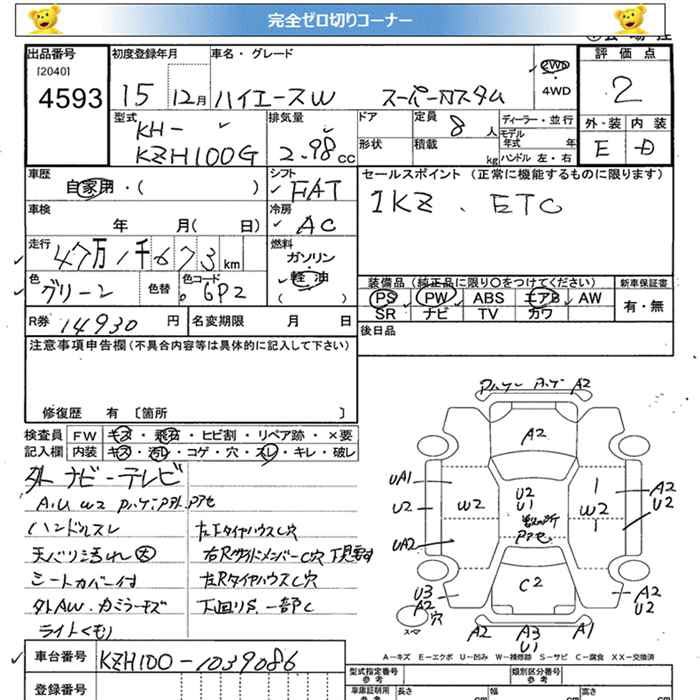 完全ゼロ切りコーナー
出品番号
[2040]
4593
初度登録年月
15 12月
車名・グレード
ハイエースW スーパーカスタム
2WD
4WD
評価点
2
型式
KH-
KZH100G
排気量
2.98 CC
ドア
形状
定員 8 人
積載 kg
ディーラー・並行
モデル年式 年
ハンドル 左・右
外・装 内装
E D
車歴
自家用・( )
シフト
FAT
セールスポイント (正常に機能するものに限ります)
1KZ . ETC
車検
年 月( 日)
冷房
AC
走行
47万1千673km
燃料
ガソリン・
軽油
( )
色
グリーン
色替
色コード
6P2
装備品 (純正品に限り○をつけてください)
PS PW ABS エアB AW
SR ナビ TV カワ
新車保証書
有・無
R券 14930 円
名変期限 月 日
後日品
注意事項申告欄(不具合内容等は具体的に記入して下さい)
修復歴 有 〔箇所 〕
検査員
記入欄
FW キズ・飛石・ヒビ割・リペア跡・×要
内装 キズ・汚れ・コゲ・穴・スレ・キレ・破レ
外ナビーテレビ
A.U W2
ハンドルスレ
天バリ汚れ大
シートカバー付
外AW.カミラーキズ
ライトくもり
左Fタイヤハウス穴
右RサイドメンバーC穴
左RタイヤハウスC穴
下回りS.一部C
A2
A2
UA1
U2
UA2
W2
U2
U1
W2
A2
U2
C2
U3
A2
穴
スペア
A2
U2
A2
A3
U1
A1
A=キズ E=エクボ U=凹み W=補修跡 S=サビ C=腐食 XX=交換済
車台番号
KZH100-1039086
登録番号
型式指定番号
参考
類別区分番号
参考
車庫証明用
参考
長さ cm
幅 cm
高さ cm